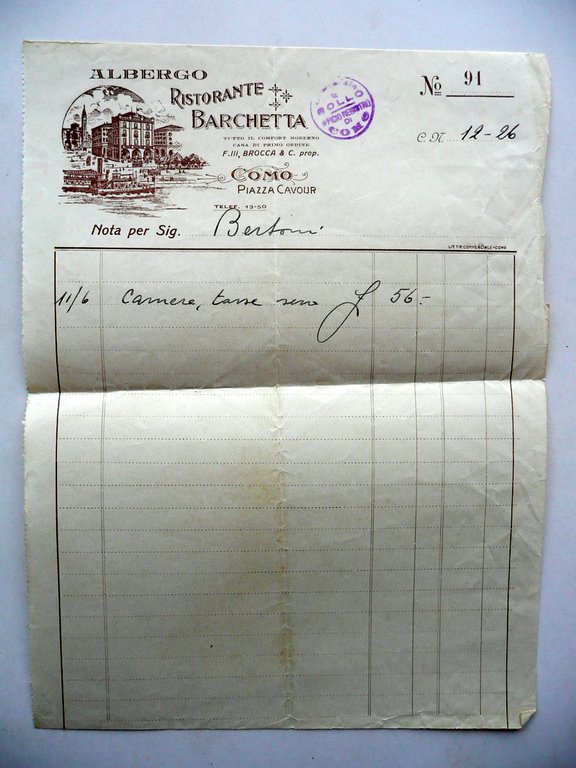 ALBERGO
RISTORANTE
BARCHETTA
TUTTO IL COMFORT MODERNO
CASA DI PRIMO ORDINE
F.lli, BROCCA & C. prop.
COMO
PIAZZA CAVOUR
TELEF. 13-50
No 91
BOLLO
DI
COMO
C. N. 12-26
Nota per Sig. Bertoni
LIT. TIP. COMMERCIALE-COMO
11/6 Camere, tasse £ 56.-